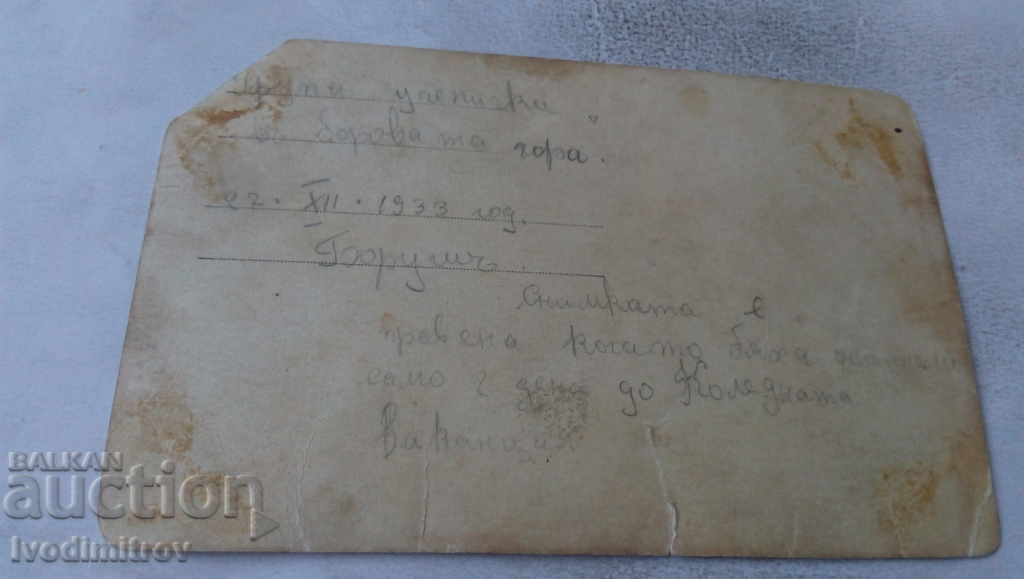 Група ученички
в боровата гора."
XII. 1933 год.
Снимката е
правена когато бяха останали
само 2 дена до Коледната
Ваканция
BALKAN
auction
Ivodimitrov